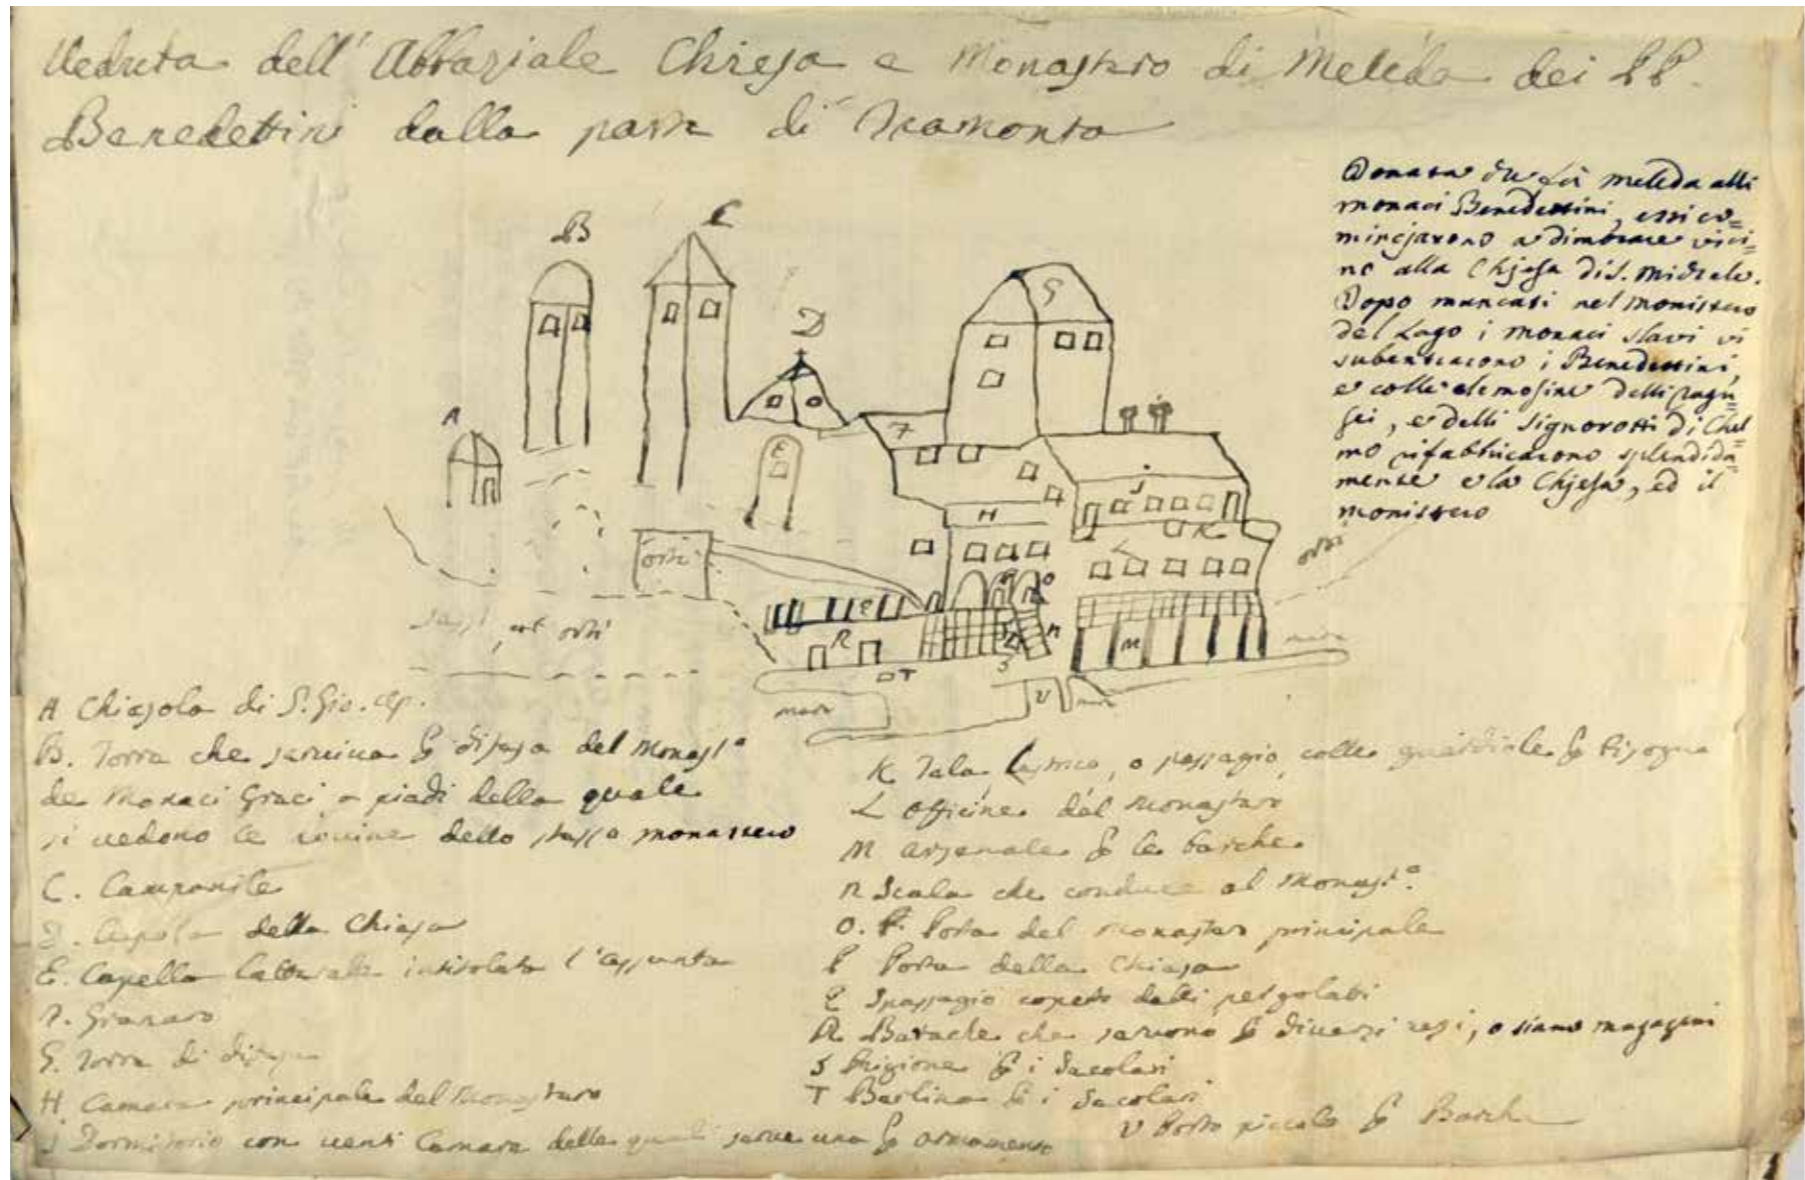 Veduta dell'Abbaziale Chiesa e Monastero di Meleda dei PP.
Benedettini dalla parte di Tramonto
Donata che fù Meleda alli
monaci Benedettini, essi co=
minciarono a dimorare vici=
no alla Chjesa di S. Michele.
Dopo mancati nel monistero
del Lago i monaci slavi vi
subentrarono i Benedettini,
e colle elemosine delli ragu=
sei, e delli signorotti di Chel=
mo rifabbricarono splendida=
mente e la Chjesa, ed il
monistero
B
C
G
D
A
F
E
J
H
K
L
orti
orti
O
orti
R
N
M
mare
S
T
V
mare
mare
A Chiesola di S. Gio.
B. Torre che serviva p difesa del Monast.o
de Monaci Greci a piedi della quale
si vedono le rovine dello stesso monastero
C. Campanile
D. Cupola della Chiesa
E. Capella laterale intitolata l'Assunta
F. Granaro
G. Torre di difesa
H Camere principale del Monastero
J Dormitorio con venti Camere delle quali serve una p
K o passagio, colle p bisogna
L Officine del Monastero
M Arsenale p le barche
N Scala che conduce al Monast.o
O. Porta del Monastero principale
P Porta della Chiesa
Q Spassagio coperto dalli pergolati
R Barache che servono p diversi usi, o siano magazini
S Prigione p i Secolari
T Berlina p i Secolari
V Porto piccolo p Barche